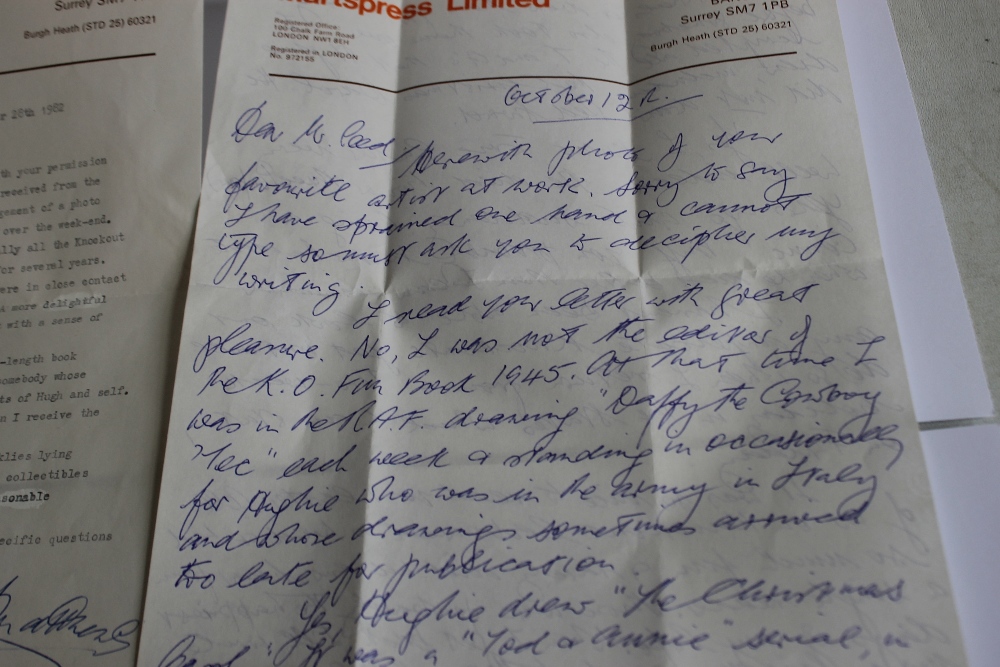 Surrey SM7
Burgh Heath (STD 25) 60321
28th 1982
with your permission
received from the
of a photo
over the week-end.
all the Knockout
for several years.
were in close contact
a more delightful
with a sense of
-length book
somebody whose
of Hugh and self.
I receive the
lying
collectibles
specific questions
Limited
Registered Office:
100 Chalk Farm Road
LONDON NW1 8EH
Registered in LONDON
No. 972155
Surrey SM7 1PB
Burgh Heath (STD 25) 60321
October 12
Dear Mr. Herewith photo of your
favourite artist at work. Sorry to say
I have sprained one hand & cannot
type so must ask you to decipher my
writing.
I read your letter with great
pleasure. No, I was not the editor of
the K.O. Fun Book 1945. At that time I
was in the R.A.F. drawing "Daffy the Cowboy
'Tec" each week & standing in occasionally
for Hughie who was in the Army in Italy
and whose drawings sometimes arrived
too late for publication.
Yes, Hughie drew "The Christmas
It was a "Tod & Annie" serial, in